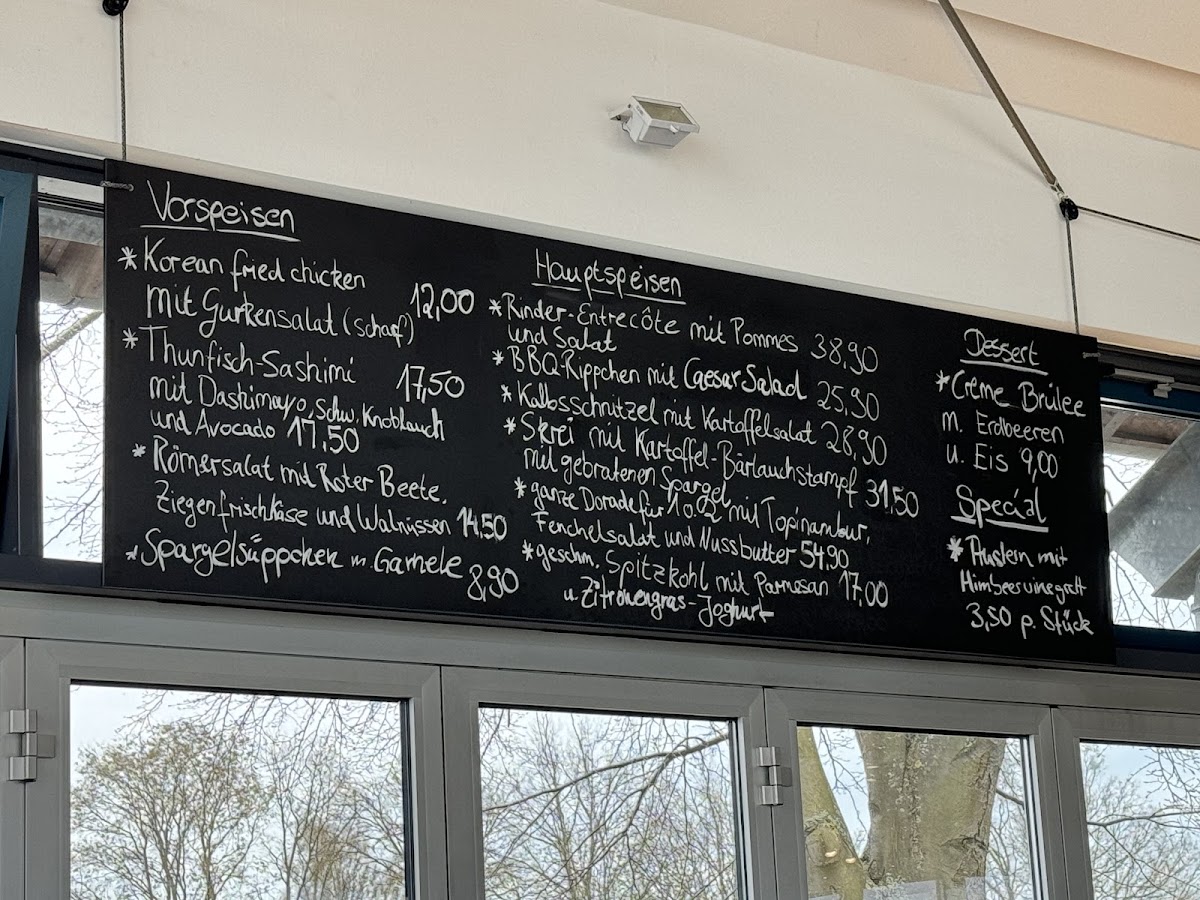 Vorspeisen
* Korean fried chicken
mit Gurkensalat (scharf) 12,00
* Thunfisch-Sashimi 17,50
mit Dashimayo, Schw. Knoblauch
und Avocado 17,50
* Römersalat mit Roter Beete,
Ziegenfrischkäse und Walnüssen 14,50
* Spargelsüppchen m. Garnele 8,90
Hauptspeisen
* Rinder-Entrecôte mit Pommes 38,90
und Salat
* BBQ-Rippchen mit Caesar Salad 25,90
* Kalbsschnitzel mit Kartoffelsalat 28,90
* Skrei mit Kartoffel-Bärlauchstampf 31,50
mit gebratenen Spargel
* ganze Dorade für 1 o. 2 mit Topinambur,
Fenchelsalat und Nussbutter 54,90
* geschm. Spitzkohl mit Parmesan 17,00
u. Zitronengras-Joghurt
Dessert
* Crème Brûlee
m. Erdbeeren
u. Eis 9,00
Special
* Austern mit
Himbeervinegrett
3,50 p. Stück